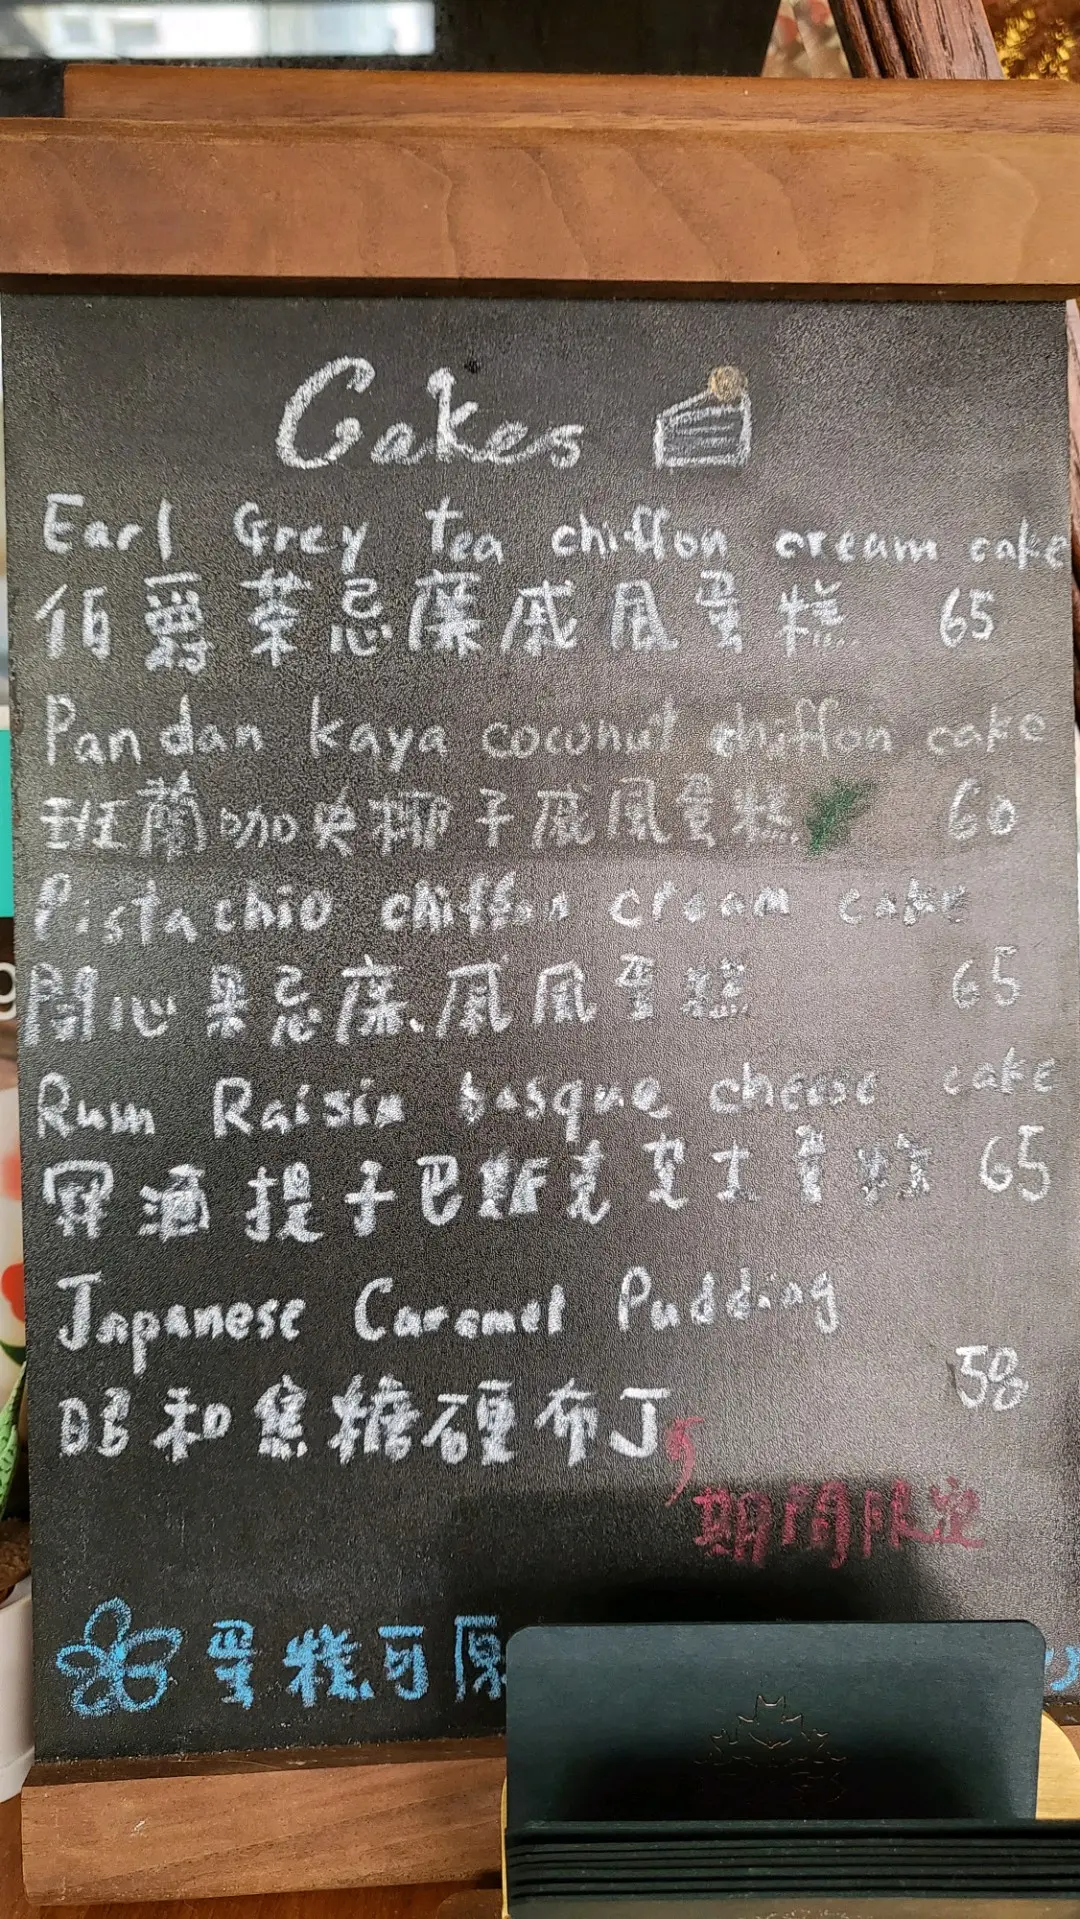 Cakes
Earl Grey tea chiffon cream cake
伯爵茶忌廉戚風蛋糕 65
Pandan kaya coconut chiffon cake
班蘭咖央椰子戚風蛋糕 60
Pistachio chiffon cream cake
開心果忌廉戚風蛋糕 65
Rum Raisin basque cheese cake
冧酒提子巴斯克芝士蛋糕 65
Japanese Caramel Pudding
昭和焦糖硬布丁 58
期間限定
蛋糕可原